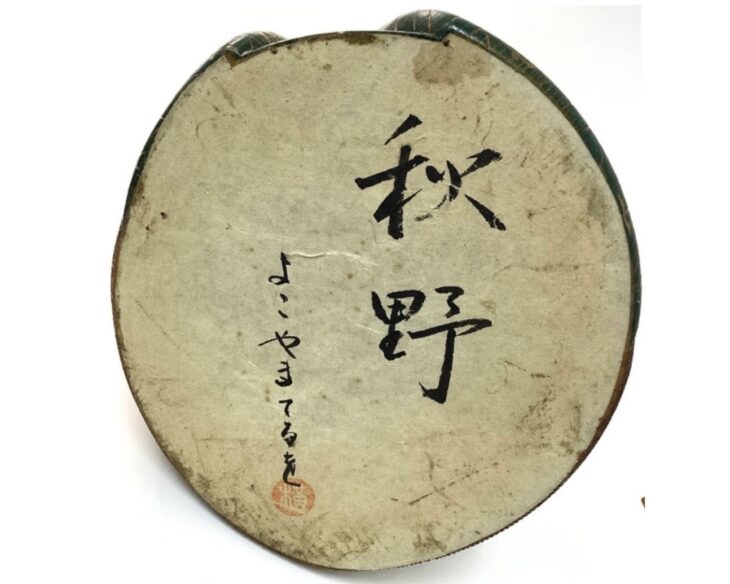 秋野
よこやまてるを
横